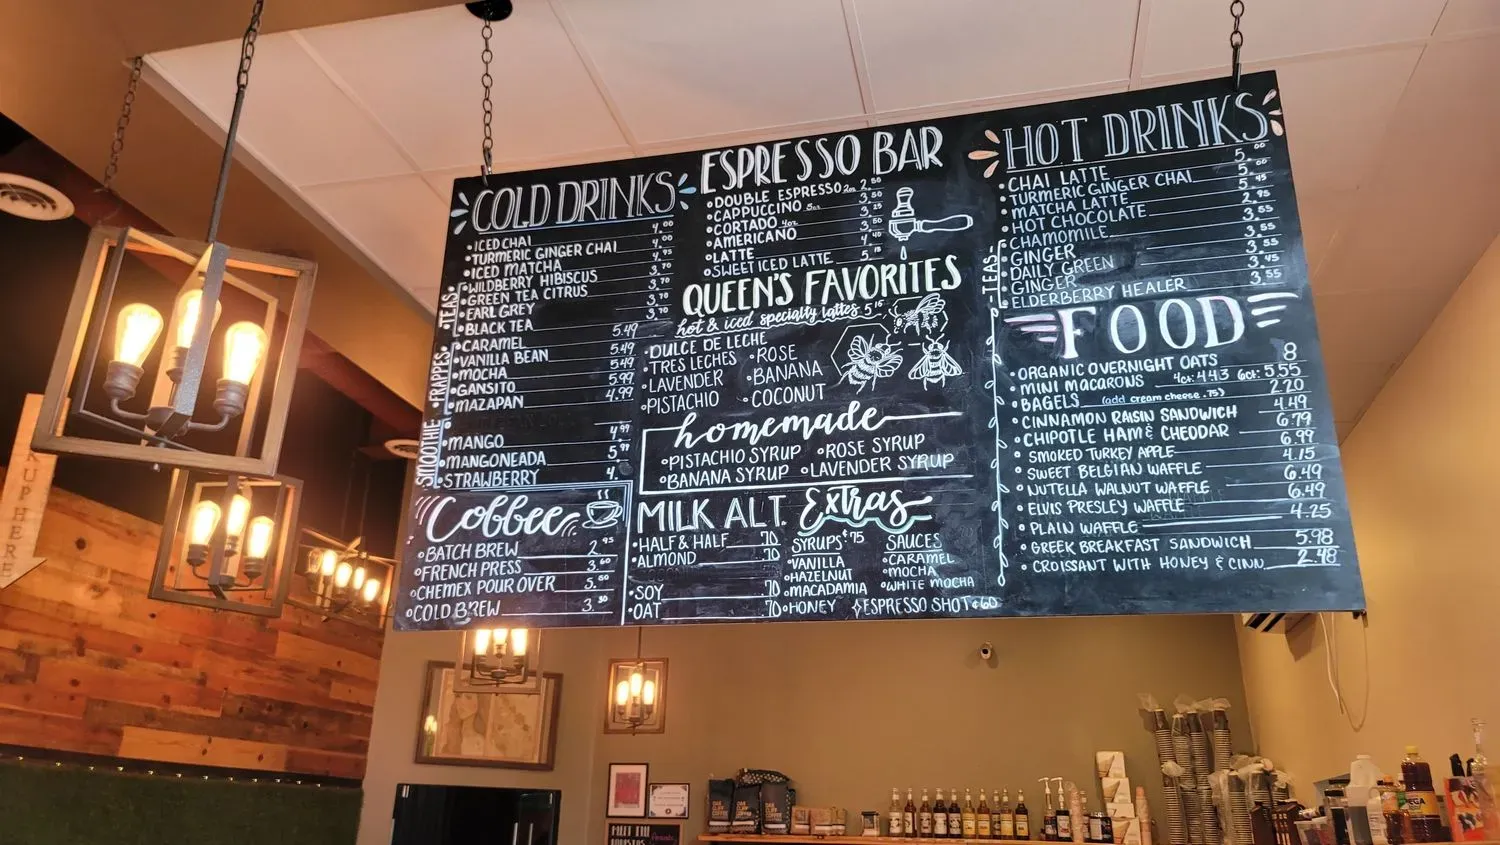 COLD DRINKS
ICED CHAI 4.00
TURMERIC GINGER CHAI 4.00
ICED MATCHA 4.95
TEAS
WILDBERRY HIBISCUS 3.70
GREEN TEA CITRUS 3.70
EARL GREY 3.70
BLACK TEA 3.70
FRAPPES
CARAMEL 5.49
VANILLA BEAN 5.49
MOCHA 5.49
GANSITO 5.99
MAZAPAN 4.99
SMOOTHIE
MANGO 4.99
MANGONEADA 5.99
STRAWBERRY 4.
Coffee
BATCH BREW 2.95
FRENCH PRESS 3.60
CHEMEX POUR OVER 5.50
COLD BREW 3.30
ESPRESSO BAR
DOUBLE ESPRESSO 2oz 2.50
CAPPUCCINO 5oz 3.50
CORTADO 4oz 3.25
AMERICANO 3.50
LATTE 4.40
SWEET ICED LATTE 5.15
QUEEN'S FAVORITES
hot & iced specialty lattes 5.15
DULCE DE LECHE
TRES LECHES
LAVENDER
PISTACHIO
ROSE
BANANA
COCONUT
homemade
PISTACHIO SYRUP
ROSE SYRUP
BANANA SYRUP
LAVENDER SYRUP
MILK ALT.
HALF & HALF .70
ALMOND .70
SOY .70
OAT .70
Extras
SYRUPS .75
VANILLA
HAZELNUT
MACADAMIA
HONEY
SAUCES
CARAMEL
MOCHA
WHITE MOCHA
ESPRESSO SHOT .60
HOT DRINKS
CHAI LATTE 5.00
TURMERIC GINGER CHAI 5.00
MATCHA LATTE 5.45
HOT CHOCOLATE 2.95
TEAS
CHAMOMILE 3.55
GINGER 3.55
DAILY GREEN 3.55
GINGER 3.45
ELDERBERRY HEALER 3.55
FOOD
ORGANIC OVERNIGHT OATS 8
MINI MACARONS 4ct: 4.43 6ct: 5.55
BAGELS (add cream cheese .75) 2.20
CINNAMON RAISIN SANDWICH 4.49
CHIPOTLE HAM & CHEDDAR 6.79
SMOKED TURKEY APPLE 6.99
SWEET BELGIAN WAFFLE 4.15
NUTELLA WALNUT WAFFLE 6.49
ELVIS PRESLEY WAFFLE 6.49
PLAIN WAFFLE 4.25
GREEK BREAKFAST SANDWICH 5.98
CROISSANT WITH HONEY & CINN 2.48
KUP HERE
OAK CLIFF COFFEE
OAK CLIFF COFFEE
MEET THE